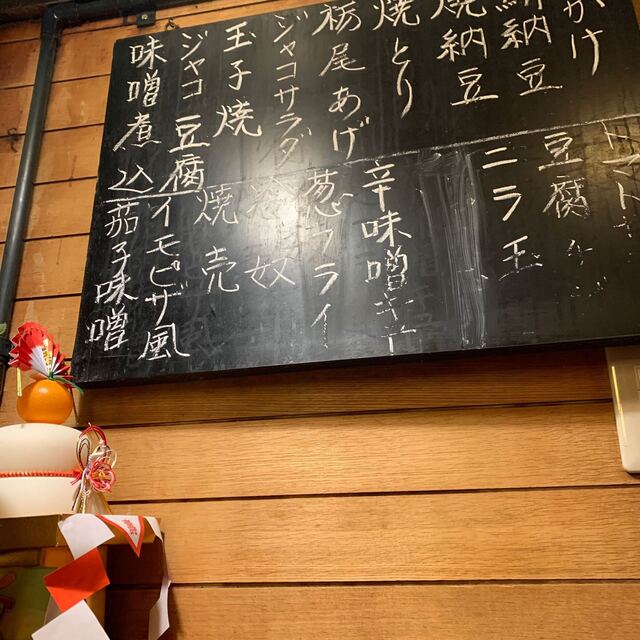 かけ
納豆
焼納豆
焼とり
栃尾あげ
ジャコサラダ
玉子焼
ジャコ豆腐
味噌煮込
トマト
豆腐
ニラ玉
辛味噌キャ
葱フライ
冷奴
焼売
イモピザ風
茄子味噌